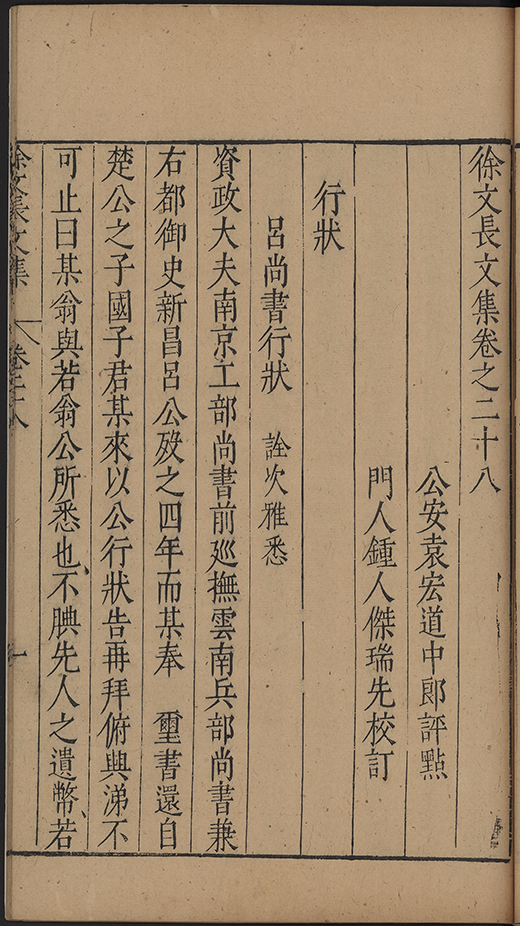 徐文長文集卷之二十八
公安袁宏道中郎評點
門人鍾人傑瑞先校訂
行狀
呂尚書行狀 詮次雅悉
資政大夫南京工部尚書前廵撫雲南兵部尚書兼
右都御史新昌呂公歿之四年而某奉 璽書還自
楚公之子國子君某來以公行狀告再拜俯興涕不
可止曰某翁與若翁公所悉也、不腆先人之遺幣、若
徐文長文集 卷二十八 一